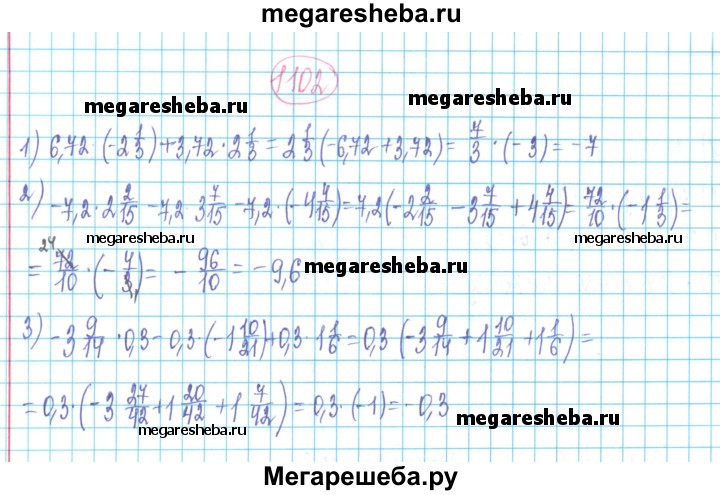 megaresheba.ru
1102
megaresheba.ru megaresheba.ru
1) 6,72 · (-2 1/3) + 3,72 · 2 1/3 = 2 1/3 (-6,72 + 3,72) = 7/3 · (-3) = -7
2) -7,2 · 2 2/15 - 7,2 · 3 7/15 - 7,2 · (-4 4/15) = 7,2 (-2 2/15 - 3 7/15 + 4 4/15) = 72/10 · (-1 1/3) =
megaresheba.ru megaresheba.ru
= 24 72/10 · (-4/3 1) = - 96/10 = -9,6
megaresheba.ru
3) -3 9/14 · 0,3 - 0,3 · (-1 10/21) + 0,3 · 1 1/6 = 0,3 · (-3 9/14 + 1 10/21 + 1 1/6) =
= 0,3 · (-3 27/42 + 1 20/42 + 1 7/42) = 0,3 · (-1) = -0,3
megaresheba.ru megaresheba.ru
Мегарешеба.ру